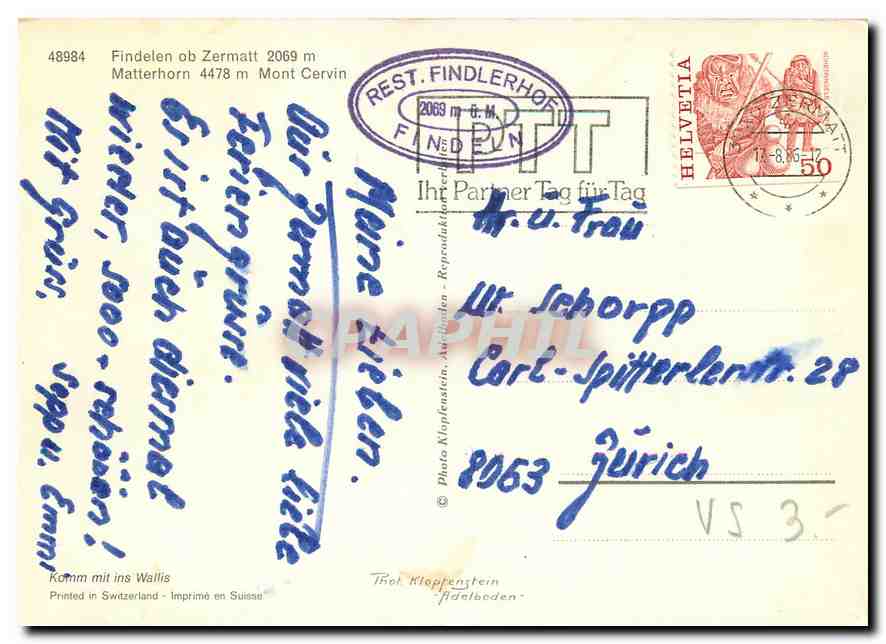 48984 Findelen ob Zermatt 2069 m
Matterhorn 4478 m Mont Cervin
REST. FINDLERHOF
2069 m ü. M.
FINDELN
PTT
Ihr Partner Tag für Tag
HELVETIA
50
ZERMATT
-8.86-12
Meine Lieben.
Aus Zermatt viele liebe
Feriengrüsse.
Er ist auch diesmal
wieder, sooo-schöön!
Mit Gruss,
Sepp u. Emmi
Hr. u. Frau
W. Schorpp
Carl-Spittelerstr. 28
8053 Zürich
VS 3.-
© Photo Klopfenstein, Adelboden - Reproduktion verboten
CPAPHIL
Komm mit ins Wallis
Printed in Switzerland - Imprimé en Suisse
Phot. Klopfenstein
-Adelboden-